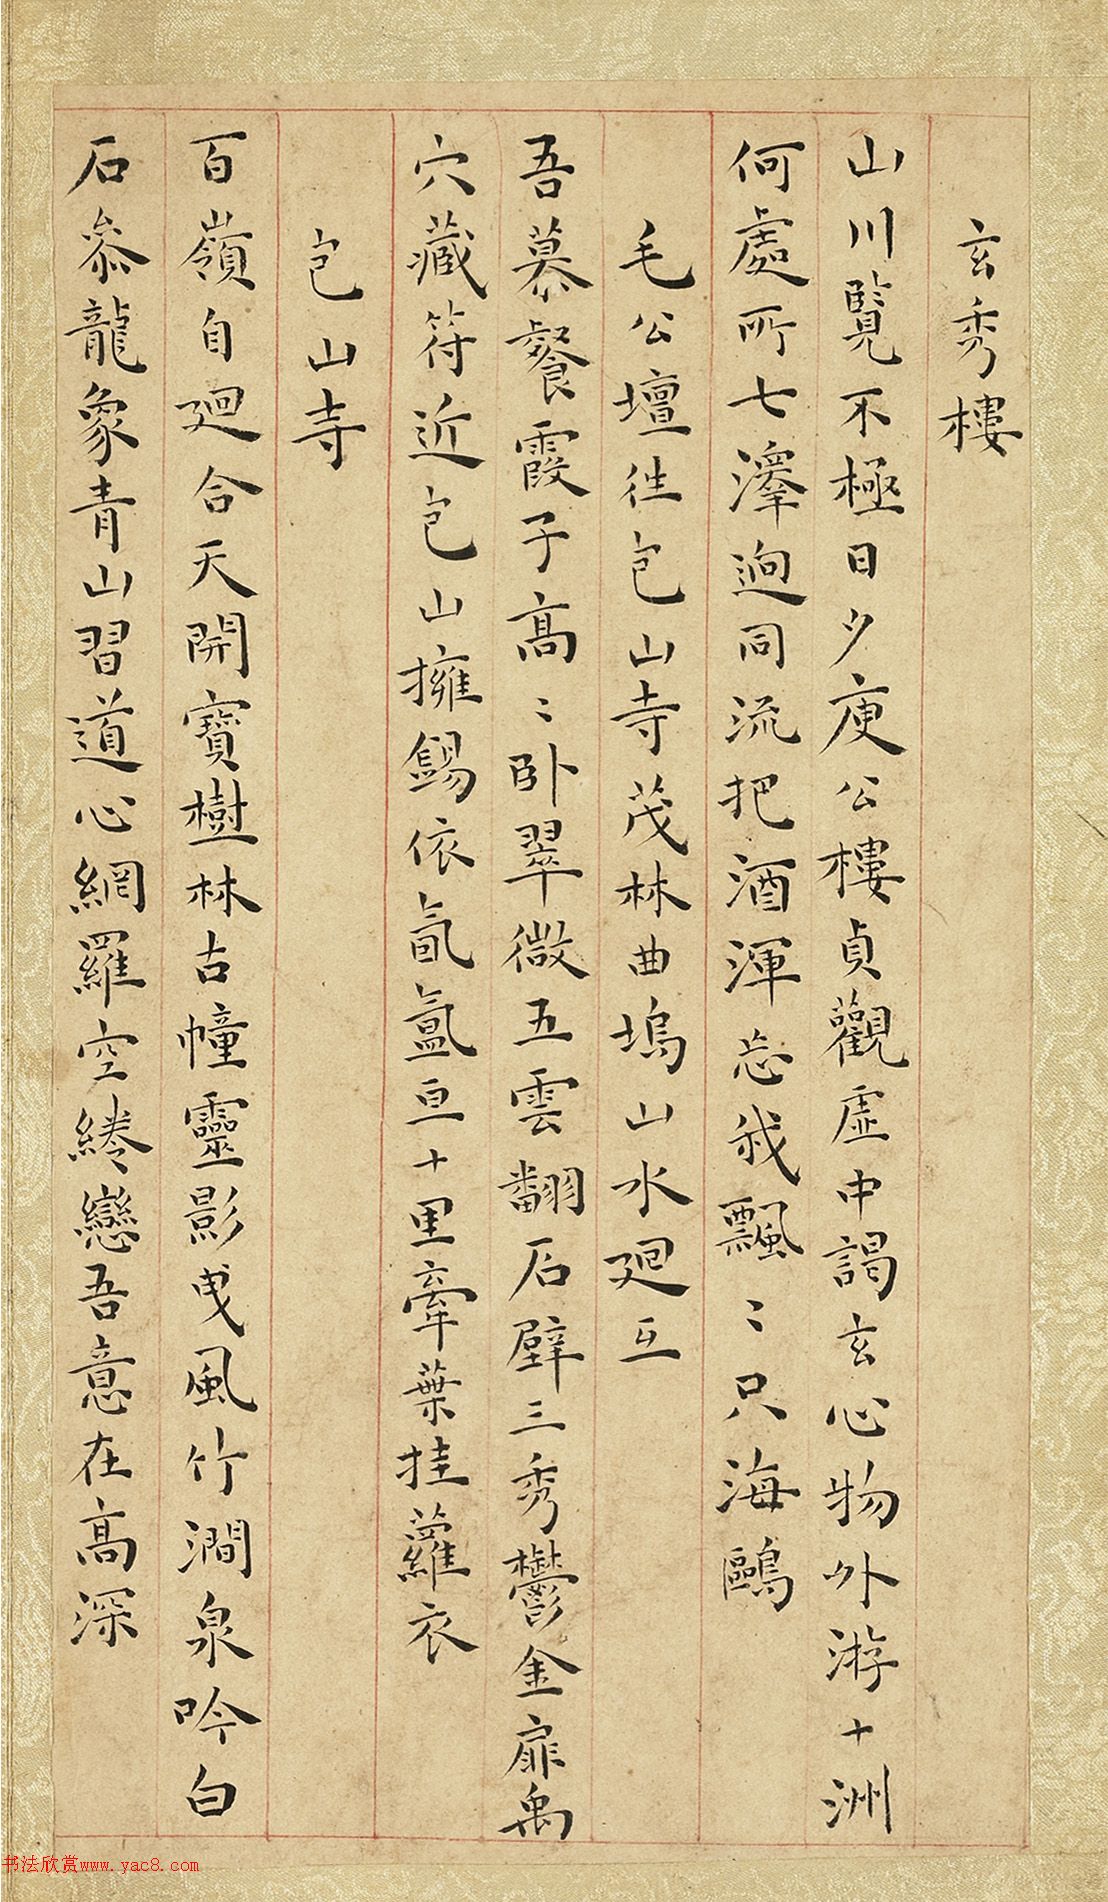 玄秀樓
山川覽不極日夕庾公樓貞觀虛中謁玄心物外游十洲
何處所七澤迥同流把酒渾忘我飄〻只海鷗
毛公壇往包山寺茂林曲塢山水廻互
吾慕餐霞子高〻卧翠微五雲翻石壁三秀鬱金扉禹
穴藏符近包山擁錫依氤氳亘十里牽葉挂蘿衣
包山寺
百嶺自廻合天開寶樹林古幢靈影曳風竹澗泉吟白
石叅龍象青山習道心網羅空綣戀吾意在高深
书法欣赏www.yac8.com